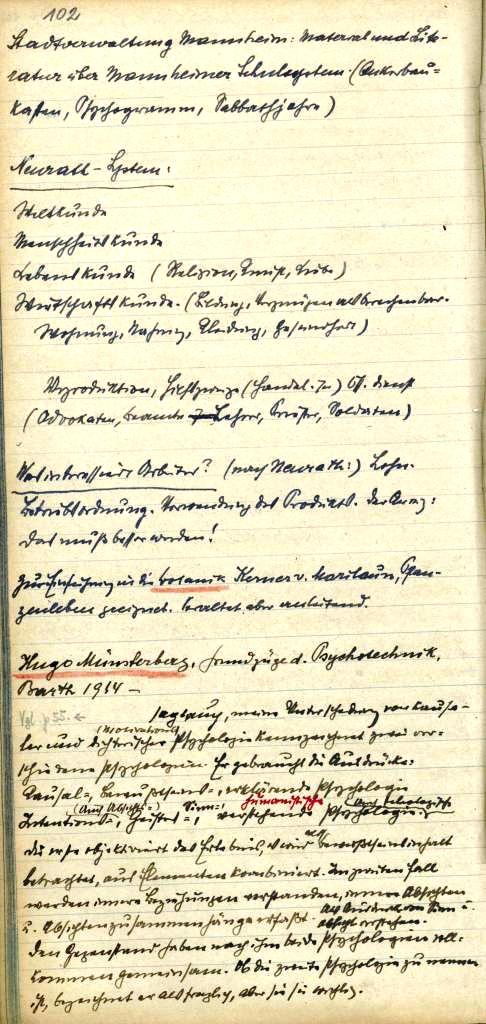 102
Stadtverwaltung Mannheim: Material und Lite-
ratur über Mannheimer Schulsystem (Ankerbau-
kasten, Psychogramm, Sabbathjahre)
Neurath-System:
Weltkunde
Menschheitskunde
Lebenskunde (Religion, Kunst, Liebe)
Wirtschaftskunde. (Bildung, Vergnügen
Wohnung, Nahrung, Kleidung, Gesundheit)
Urproduktion, (Handel. öff. Dienst
(Advokaten, Beamte Lehrer, Priester, Soldaten)
Was interessiert Arbeiter? (nach Neurath:) Lohn.
Betriebsordnung. Verwendung des Produkts.
das muß besser werden!
Zur Einführung in die Botanik Kerner v. Marilaun, Pflan-
zenleben geeignet. Veraltet, aber anleitend.
Hugo Münsterberg, Grundzüge d. Psychotechnik,
Barth 1914 —
Vgl. p 55. ←
sagt auf, meine Unterscheidung von kausa-
(Motivation)
ler und dichterischer Psychologie kennzeichnet zwei ver-
schiedene Psychologien. Er gebraucht die Ausdrücke:
Kausal=, Bewusstseins=, erklärende Psychologie
(auf Absicht=) Sinn=, humanistische
Intentions=, Geistes=, verstehende Psychologie.
die erste objektiviert das Erlebnis, wird als Bewußtseinsinhalt
betrachtet, aus Elementen kombiniert. Im zweiten Fall
werden innere Beziehungen verstanden, innere Absichten
u. Absichtenzusammenhänge erfaßt. als Ausdruck von Sinn u.
Absicht verstehen.
den Gegenstand haben nach ihm beide Psychologien voll-
kommen gemeinsam. Ob die zweite Psychologie zu nennen
ist, bezeichnet er als fraglich, aber sie sei wichtig.